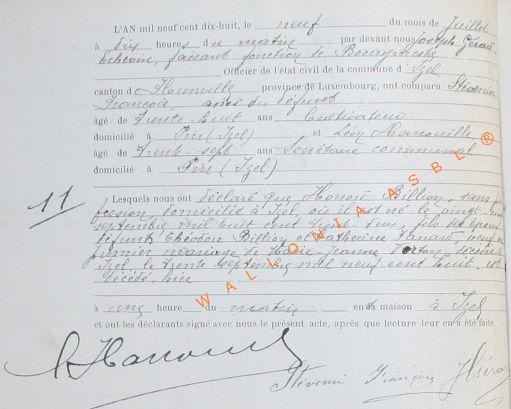 L'AN mil neuf cent dix-huit, le neuf du mois de Juillet
à dix heures du matin par devant nous Joseph Gérard
Echevin, faisant fonction de Bourgmestre
Officier de l'état civil de la commune d' Izel
canton de province de Luxembourg, ont comparu Stévenin
François, ami du défunt
âgé de trente-huit ans Cultivateur
domicilié à Pin (Izel) et Léon Hanouille
âgé de trente-sept ans Secrétaire communal
domicilié à Pin (Izel)
11
Lesquels nous ont déclaré que Honoré Billion, sans pro-
fession, domicilié à Izel, où il est né le vingt
septembre mil huit cent fils des époux
défunts Théodore Billion et Catherine veuf en
premier mariage de Marie-Jeanne décédée à
Izel le trente septembre mil neuf cent huit, est
décédé hier
à une heure du matin en sa maison à Izel
et ont les déclarants signé avec nous le présent acte, après que lecture leur en a été faite
L Hanouille
Stévenin François JGérard
WALLONIA ASBL ®